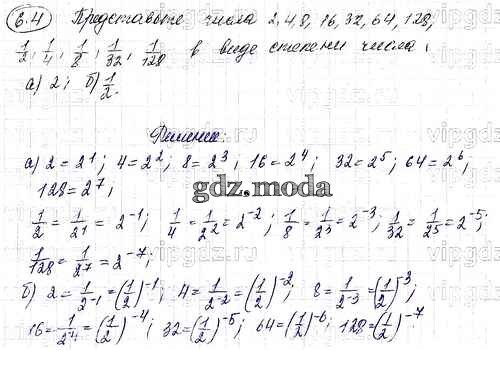 6.4 Представьте числа 2,4,8, 16, 32, 64, 128,
1/2, 1/4, 1/8, 1/32, 1/128 в виде степени числа:
а) 2; б) 1/2.
Решение:
а) 2 = 2^1; 4 = 2^2; 8 = 2^3; 16 = 2^4; 32 = 2^5; 64 = 2^6;
128 = 2^7;
gdz.moda
1/2 = 1/2^1 = 2^-1; 1/4 = 1/2^2 = 2^-2; 1/8 = 1/2^3 = 2^-3; 1/32 = 1/2^5 = 2^-5;
1/128 = 1/2^7 = 2^-7;
б) 2 = 1/2^-1 = (1/2)^-1; 4 = 1/2^-2 = (1/2)^-2; 8 = 1/2^-3 = (1/2)^-3
16 = 1/2^-4 = (1/2)^-4; 32 = (1/2)^-5; 64 = (1/2)^-6; 128 = (1/2)^-7